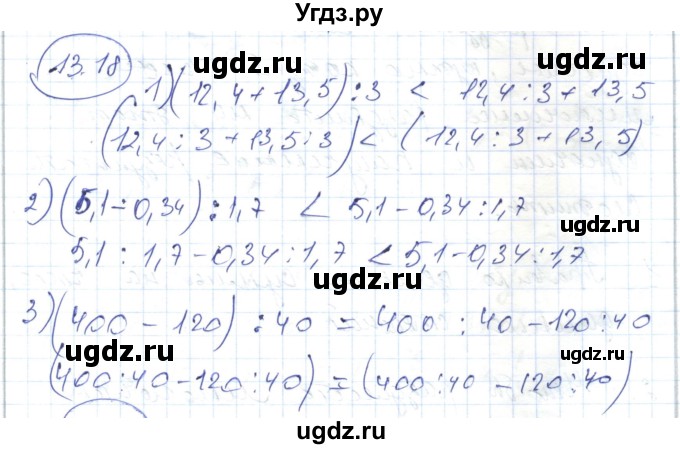 Угдз.ру
13.18
ugdz.ru ugdz.ru
1) (12,4 + 13,5) : 3 < 12,4 : 3 + 13,5
(12,4 : 3 + 13,5 : 3) < (12,4 : 3 + 13,5)
ugdz.ru
2) (5,1 - 0,34) : 1,7 < 5,1 - 0,34 : 1,7
ugdz.ru ugdz.ru
5,1 : 1,7 - 0,34 : 1,7 < 5,1 - 0,34 : 1,7
ugdz.ru
3) (400 - 120) : 40 = 400 : 40 - 120 : 40
ugdz.ru ugdz.ru
(400 : 40 - 120 : 40) = (400 : 40 - 120 : 40)
ugdz.ru
ugdz.ru